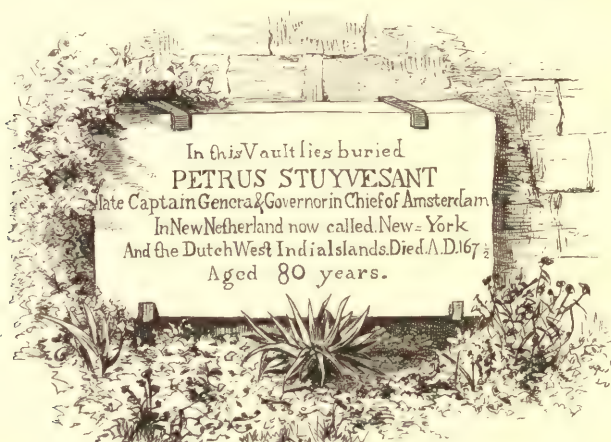 In this Vault lies buried
PETRUS STUYVESANT
late Captain Genera & Governor in Chief of Amsterdam
In New Netherland now called New = York
And the Dutch West India Islands. Died. A.D. 167 1/2
Aged 80 years.